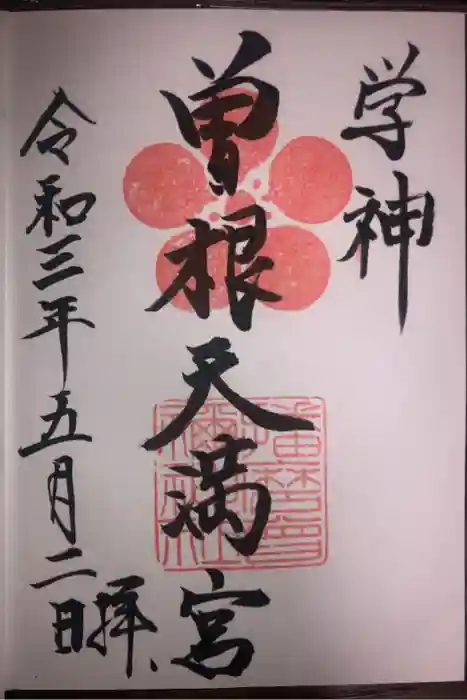 学神
曽根天満宮
令和三年五月二日拝、